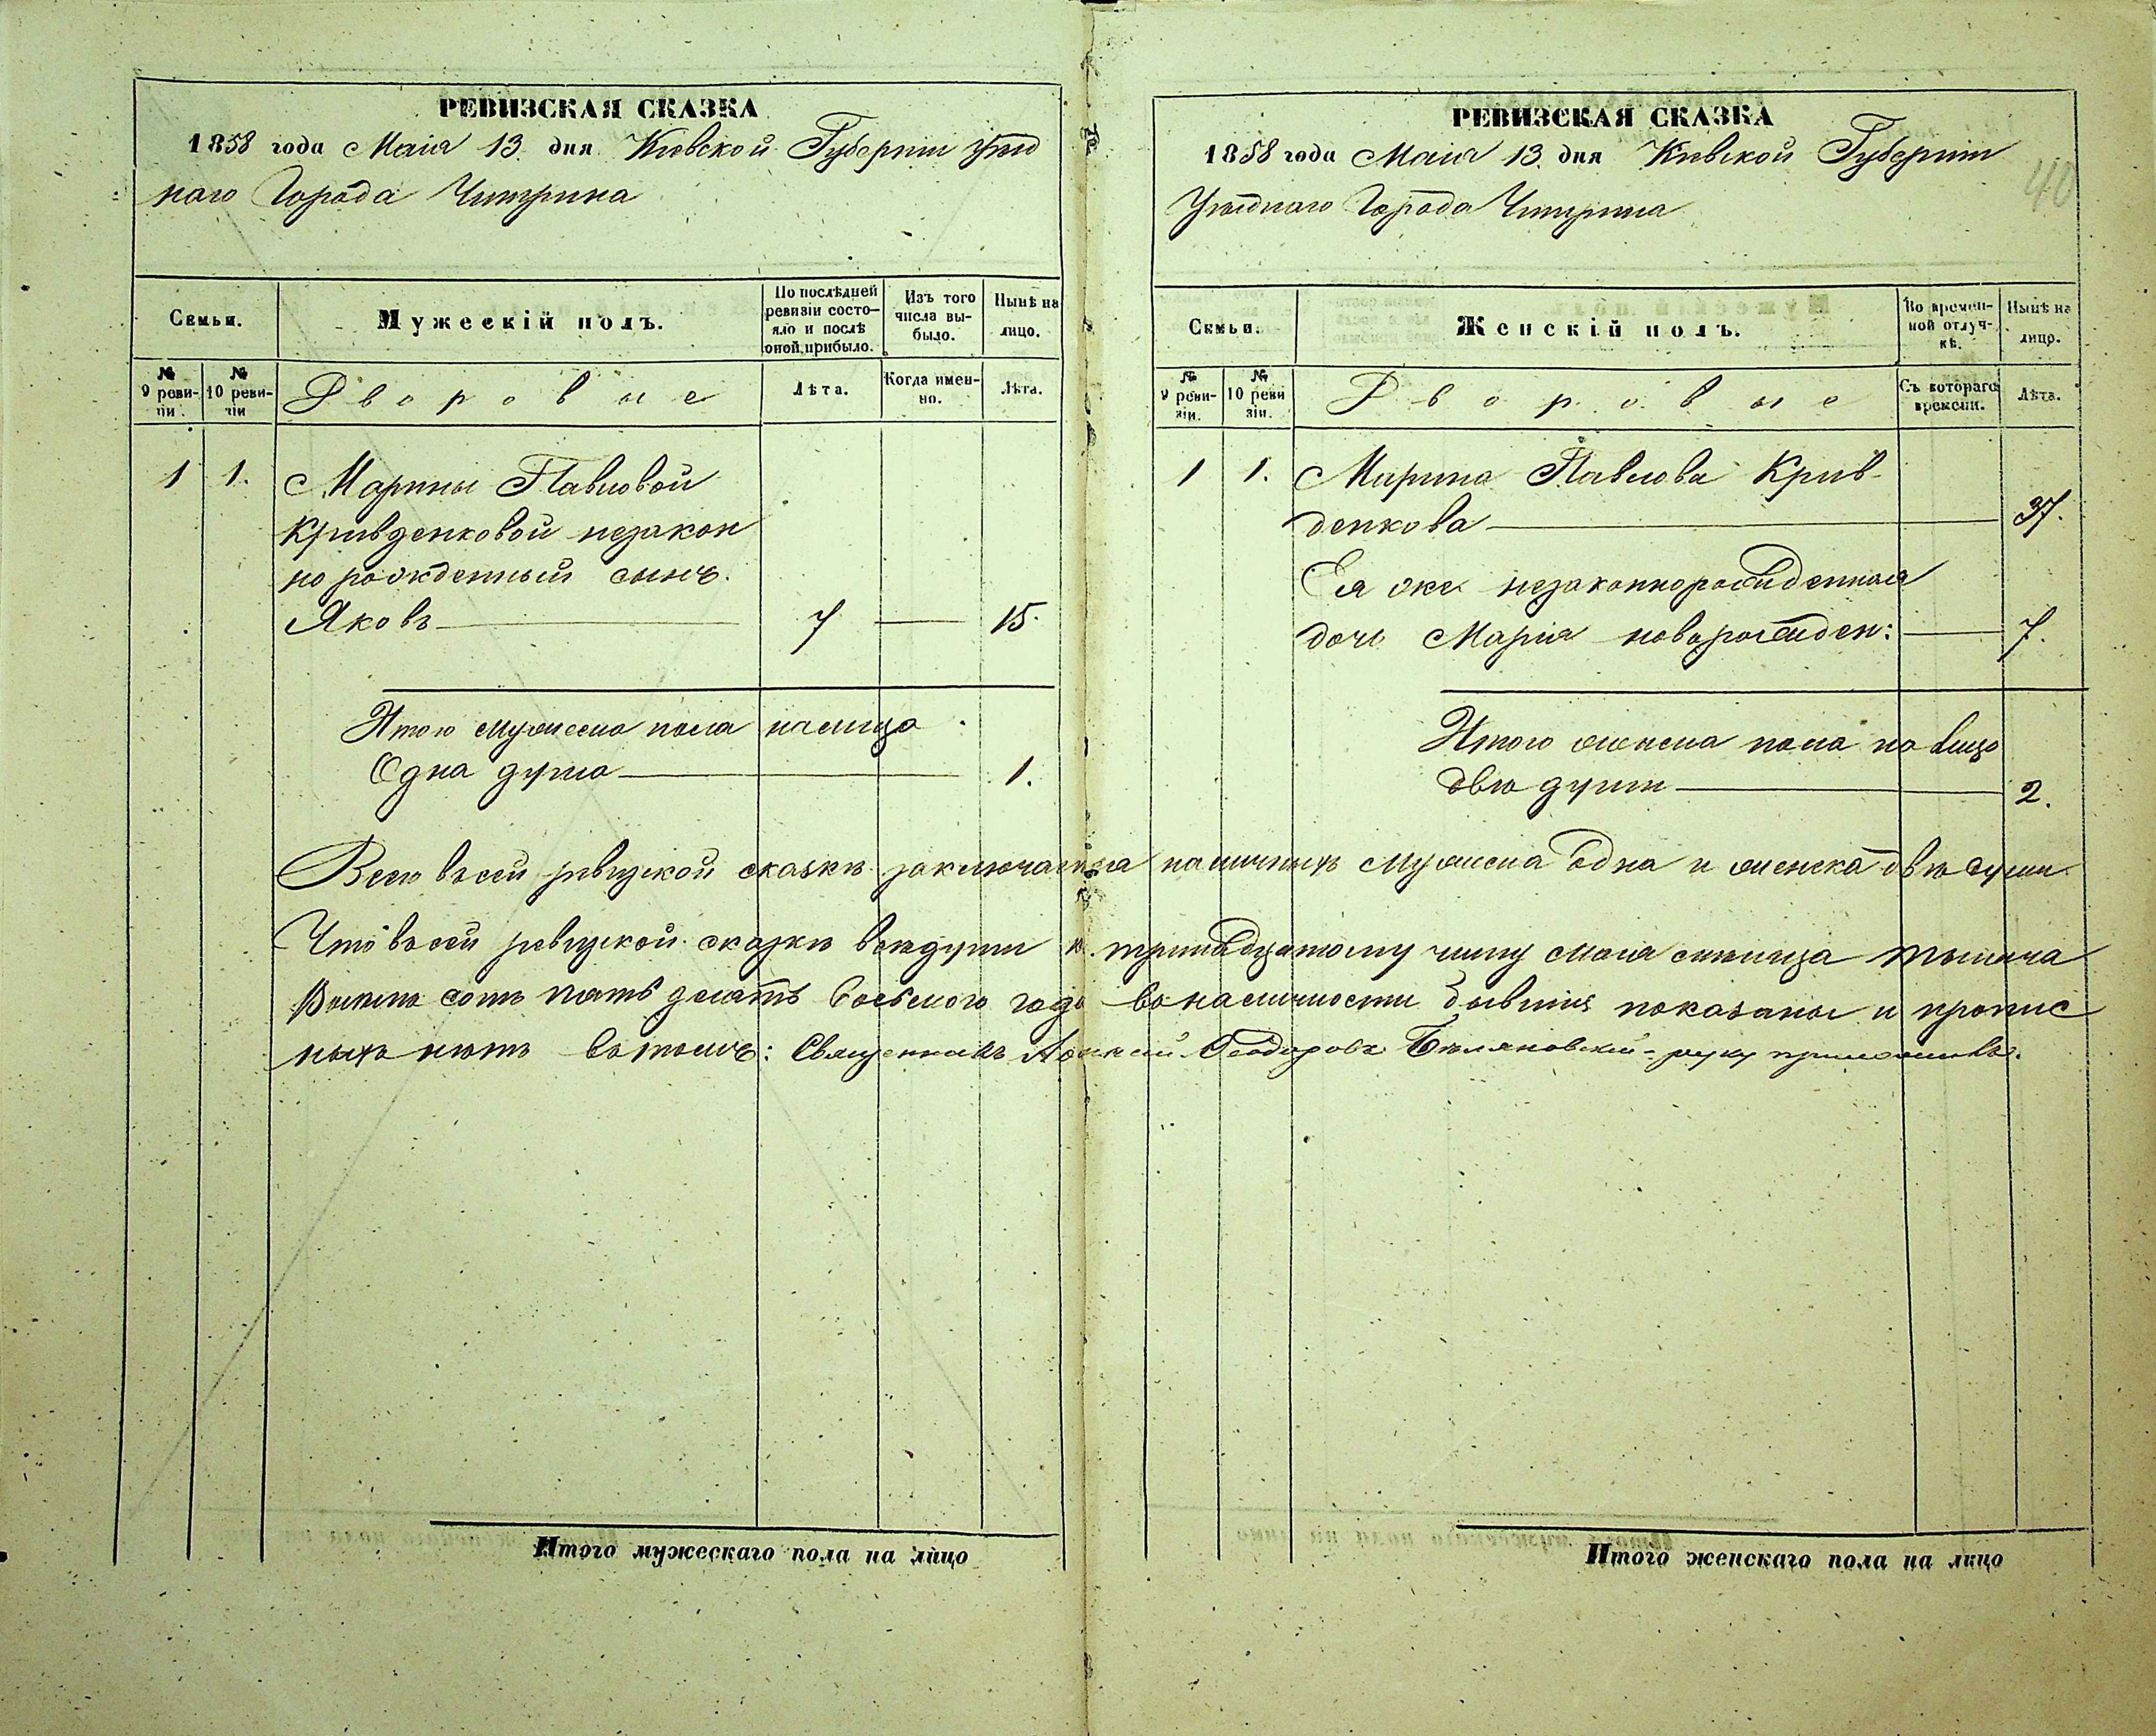 РЕВИЗСКАЯ СКАЗКА
1858 года Маія 13. дня Кіевской Губерніи уѣзд
наго Города Чигрина
Семьи.
Мужескій полъ.
По послѣдней ревизіи состояло и послѣ оной прибыло.
Изъ того числа выбыло.
Нынѣ на лицо.
№ 9 ревизіи.
№ 10 ревизіи
Дворовые
Лѣта.
Когда именно.
Лѣта.
1 1. Марины Павловой
Кривденковой незакон
но рожденный сынъ.
Яковъ 7 15.
Итого мужеска пола налицо
Одна душа 1.
Итого мужескаго пола на лицо
РЕВИЗСКАЯ СКАЗКА
1858 года Маія 13. дня Кіевской Губерніи
Уѣзднаго Города Чигрина
40
Семьи.
Женскій полъ.
Во временной отлучкѣ.
Нынѣ на лицо.
№ 9 ревизіи.
№ 10 ревизіи.
Дворовые
Съ котораго времени.
Лѣта.
1 1. Марина Павлова Крив-
денкова 37.
Ея же незаконнорожденная
дочь Марія новорожден: 7.
Итого женска пола на лицо
двѣ души 2.
Всего въ сей ревизской сказкѣ заключается наличныхъ мужеска одна и женска двѣ души
Что въ сей ревизской сказкѣ все души к. тринадцатому числу маія мѣсяца тысяча
восемь сотъ пять десятъ восьмого года въ наличности бывшія показаны и пропис
ныхъ нѣтъ въ томъ: Священникъ Феодоровъ Бѣляновскій руку приложилъ.
Итого женскаго пола на лицо